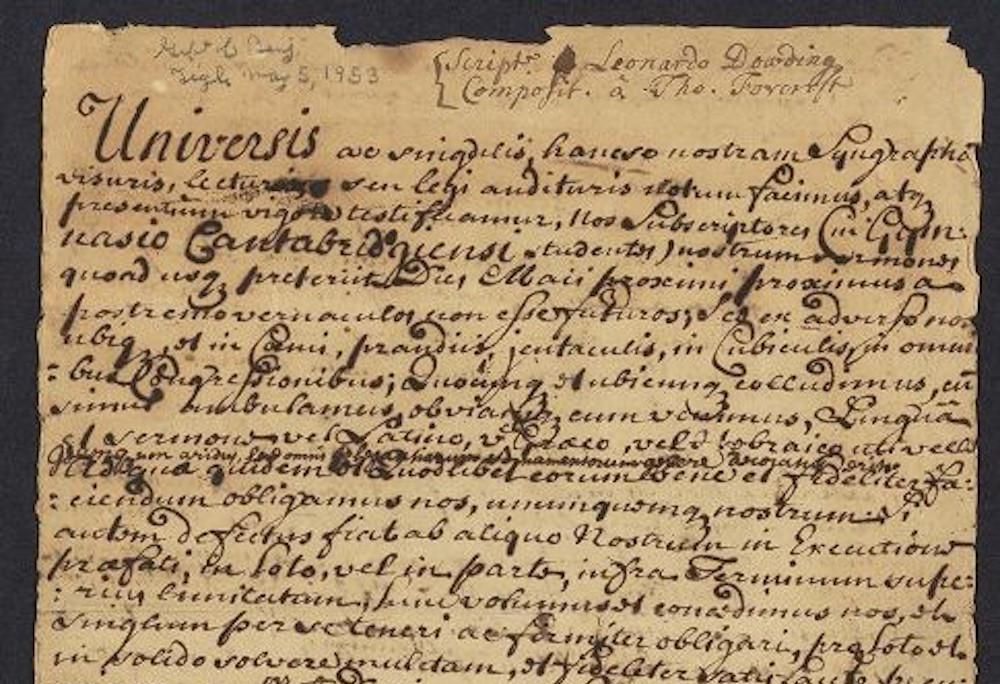 Gift of Benj.
May 5, 1953
Script. Leonardo Dowding
Composit. à Tho. Forcrest
Universis ac singulis, hancce nostram Syngrapha
visuris, lecturis seu legi audituris notum facimus, atq
presentium vigore testificamur, Nos Subscriptores (in Gym:
nasio Cantabridgiensi studentes) nostrum sermones
quoad usq preteriit Dies Maii proximi proximus a
postremo vernaculos non esse futuros; sed ex adverso non
ubiq, et in Cœni, prandiis, jentaculis, in Cubiculis, in omni
: bus Congressionibus; Quocunq et ubicunq colludimus, cū
simul ambulamus, obviam cum venimus, Linguā
et sermone vel Latino, vel Græco, vel Hebraico uti velle
quidem Quodlibet eorum bene et fideliter fa:
: ciendum obligamus nos, unumquemq nostrum. Si
autem defectus fiat ab aliquo Nostrum in Executione
præfati, in toto, vel in parte, infra Terminum supe:
: rius limitatum, tunc volumus et concedimus nos, et
singlum per se teneri ac firmiter obligari, pro toto et
in solido solvere mulctam, et fideliter